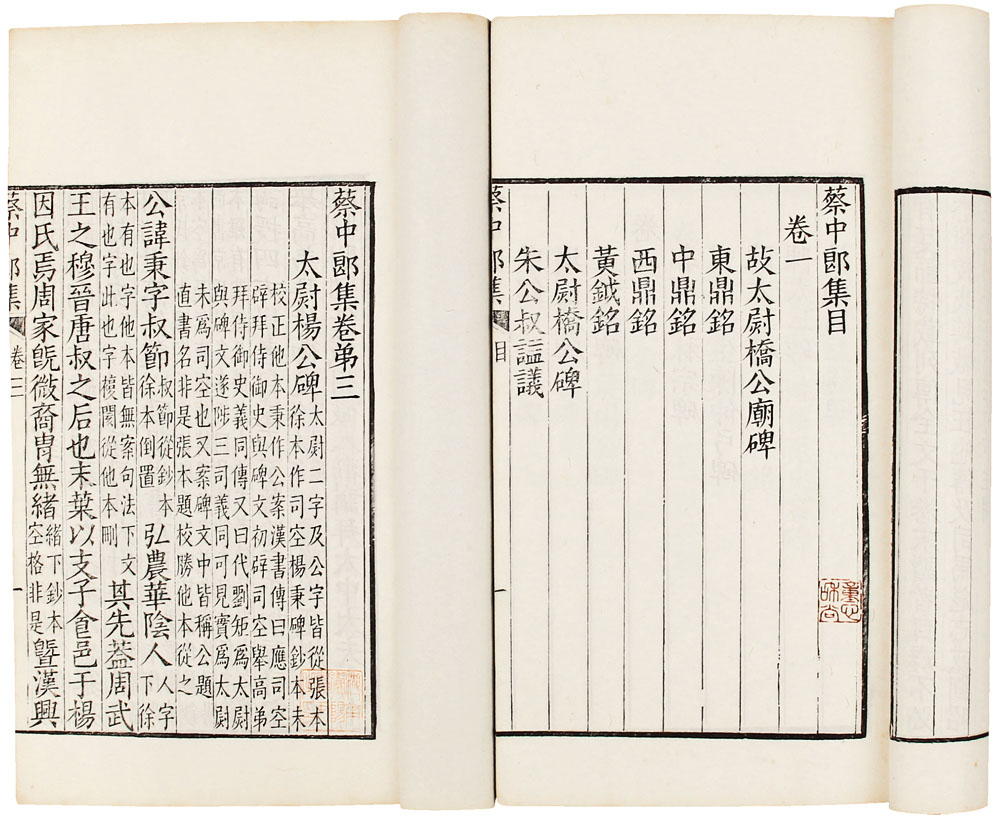 蔡中郎集目
卷一
故太尉橋公廟碑
東鼎銘
中鼎銘
西鼎銘
黃鉞銘
太尉橋公碑
朱公叔諡議
蔡中郎集 目 一
蔡中郎集卷弟三
太尉楊公碑
太尉二字及公字皆從張本
徐本作司空楊秉碑鈔本未
校正他本秉作公案漢書傳曰應司空
辟拜侍御史與碑文初辟司空舉高弟
拜侍御史義同傳又曰代劉矩爲太尉
與碑文遂陟三司義同可見實爲太尉
未爲司空也又案碑文中皆稱公題
直書名非是張本題校勝他本從之
公諱秉字叔節
叔節從鈔本
徐本倒置
弘農華陰人
人字
下徐
本有也字他本皆無案句法下文
有也字此也字從他本刪
其先葢周武
王之穆晉唐叔之后也末葉以支子食邑于楊
因氏焉周家旣微裔冑無緒
緒下鈔本
空格非是
曁漢興
蔡中郎集 卷三 一